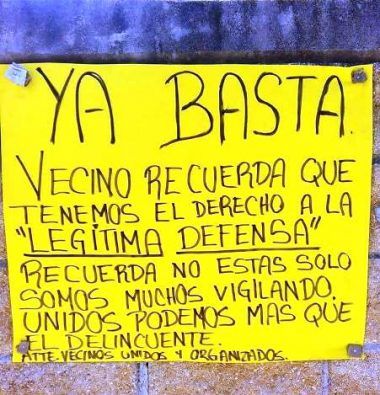 YA BASTA.
VECINO RECUERDA QUE
TENEMOS EL DERECHO A LA
"LEGÍTIMA DEFENSA"
RECUERDA NO ESTAS SOLO
SOMOS MUCHOS VIGILANDO.
UNIDOS PODEMOS MAS QUE
EL DELINCUENTE.
ATTE. VECINOS UNIDOS Y ORGANIZADOS.